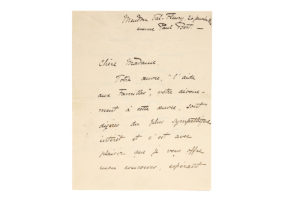 Meudon Val-Fleury
avenue Paul
Chère Madame
Votre œuvre, "l'aide
aux familles", votre dévoue-
ment à cette œuvre, sont
dignes du plus sympathique
intérêt et c'est avec
plaisir que je vous offre
mon concours, espérant